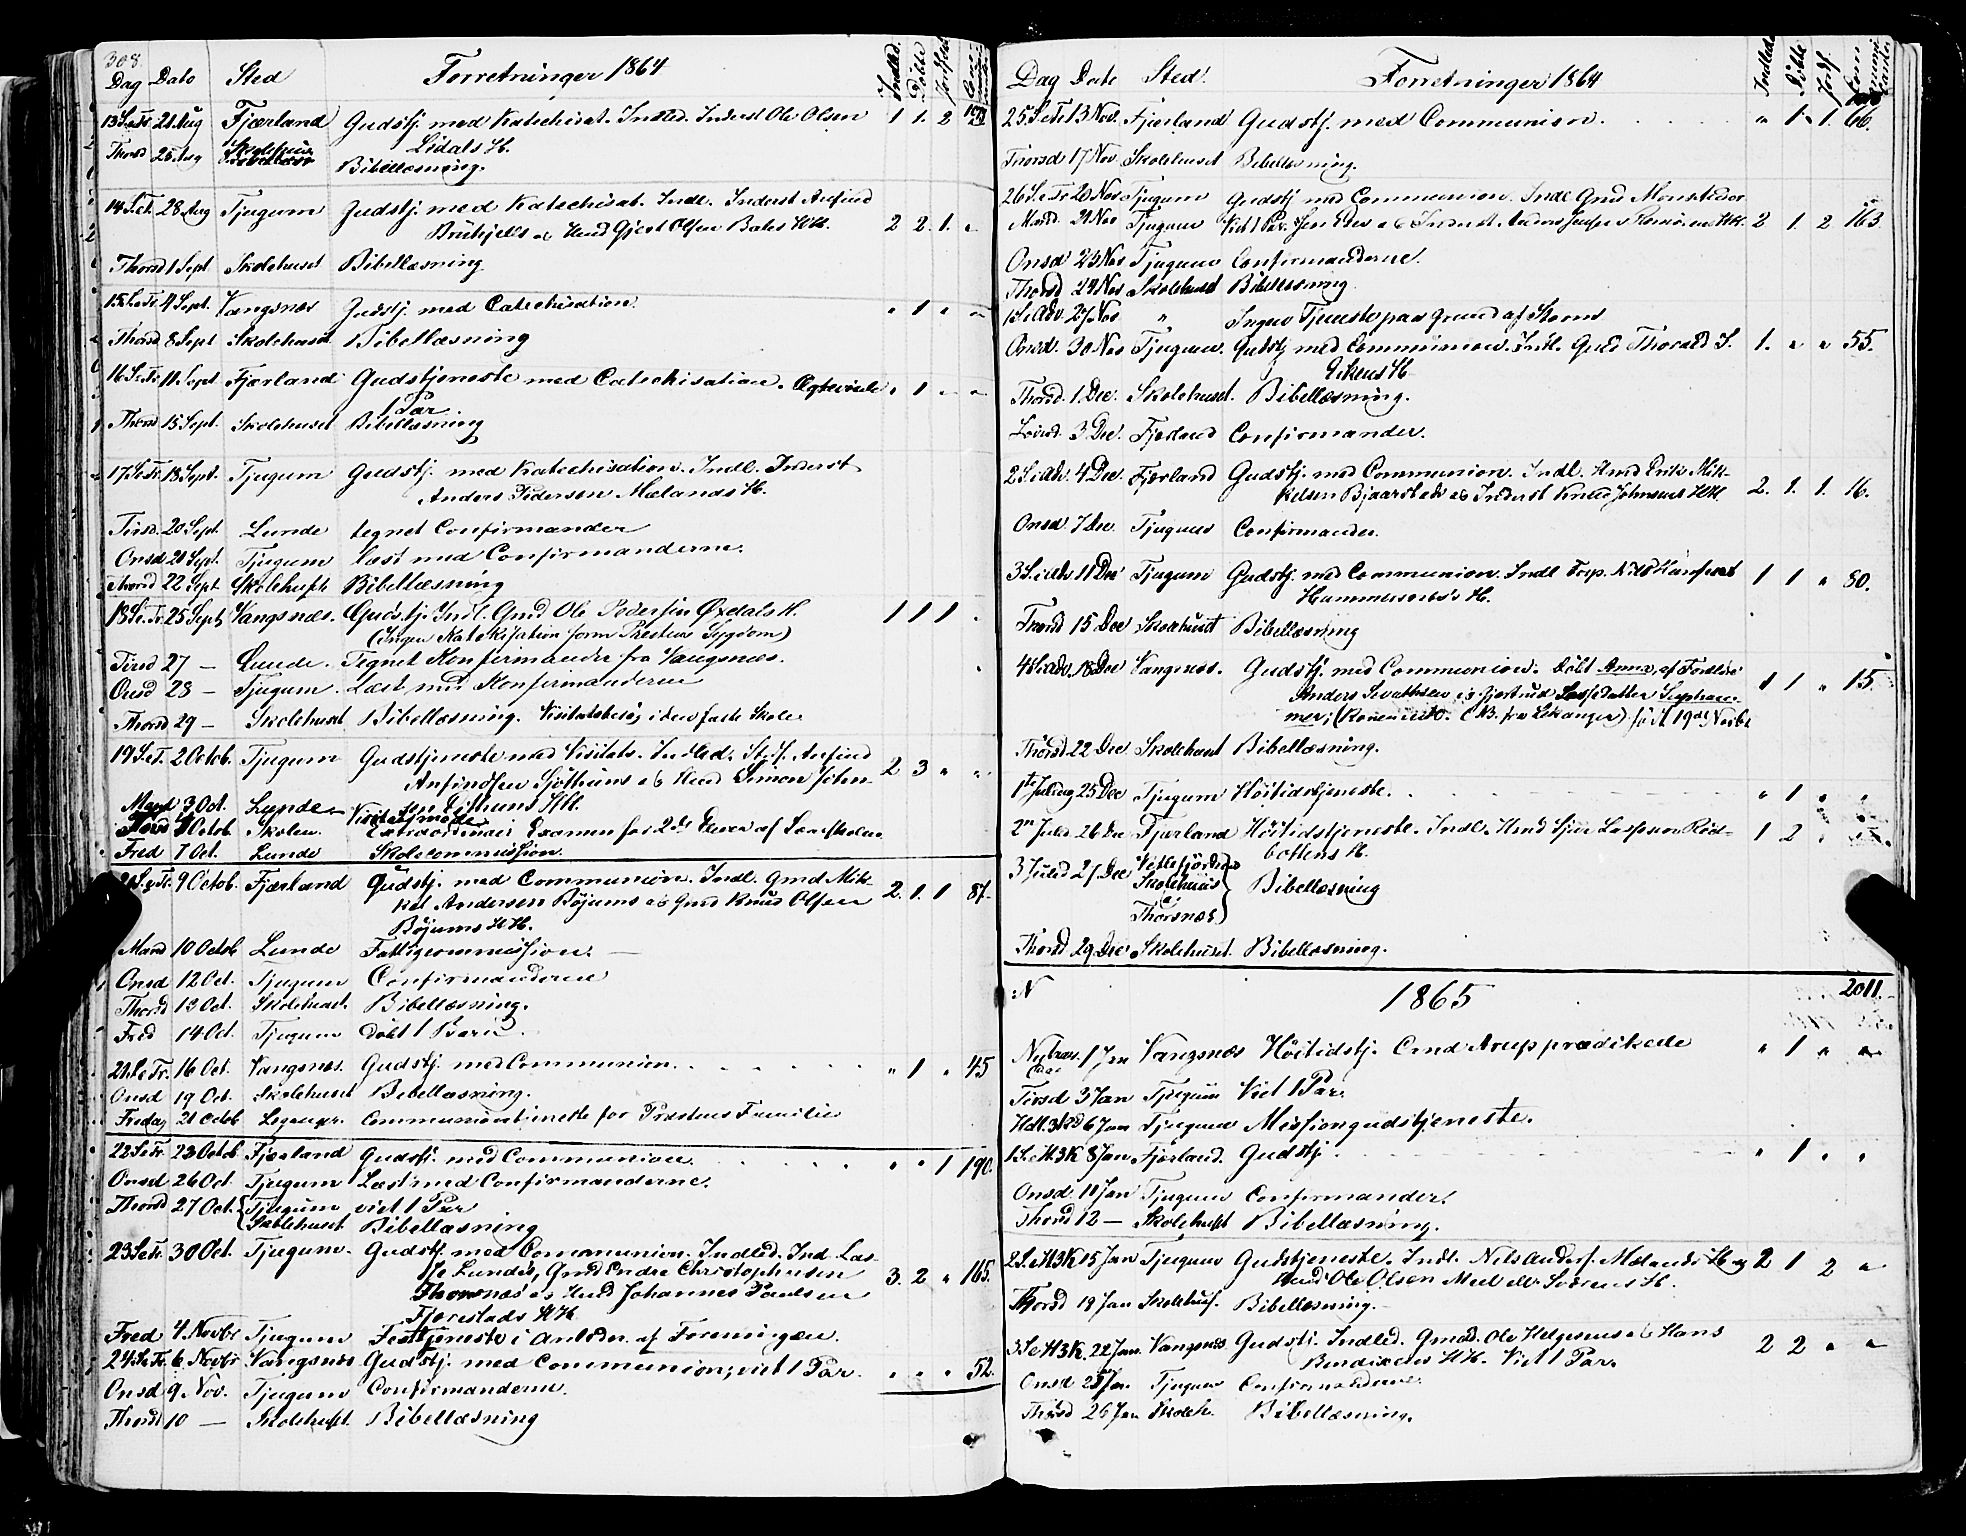 308.
Dag Dato Sted Forretninger 1864 Indled. Döbte Jordf.
13 S.e.Tr. 21 Aug Fjærland Gudstj. med Katechisat. Indled. Inderst Ole Olsen 1 1. 2
Lidals H.
Thorsd 25 Aug Skolehus Bibellæsning.
14 S.e.T. 28 Aug Tjugum Gudstj. med Katechisat. Indl. Inderst Anfind
og Hmd Gjert Olsen Bales HH. 2 2. 1. "
Thorsd 1 Sept Skolehuset Bibellæsning
15 S.e.Tr. 4 Sept. Vangsnæs Gudstj. med Catechisation. " 1 " "
Thorsd 8 Sept Skolehuset Bibellæsning
16 S.e.Tr. 11 Sept. Fjærland Gudstjeneste med Catechisation. Ægteviede " 1 " "
1 Par.
Thorsd 15 Sept. Skolehuset Bibellæsning
17 S.e.Tr. 18 Sept. Tjugum Gudstj. med Katechisation. Indl. Inderst
Anders Pedersen Mælands H.
Tirsd. 20 Sept. Lunde tegnet Confirmander
Onsd 21 Sept. Tjugum læst med Confirmanderne.
Thorsd 22 Sept Skolehust Bibellæsning
18 S.e.Tr. 25 Sept Vangsnæs. Gudstj. Indl. Gmd Ole Pedersen Øxdals H. 1 1 1 .
(Ingen Katekisation form Prestens Sygdom)
Tirsd 27 — Lunde. Tegnet Konfirmander fra Vangsnæs.
Onsd 28 — Tjugum. Læst med Konfirmanderne
Thorsd 29 — Skolehuset Bibellæsning. Visitatsbesøg i den faste Skole
19 S.e.T. 2 Octob. Tjugum Gudstjeneste med Visitats. Indled. Anfind
Anfindsen Sjöthuns og Hmd Simon John- 2 3 " "
sen HH.
Mand 3 Oct. Lunde Visitatsmøde
6 Octob. Skolen. Extraordinair Examen for 2de Elever af Lærerskolen
Fred 7 Oct. Lunde Skolecommission.
20 S.e.Tr. 9 Octob. Fjærland Gudstj. med Communion. Indl. Gmd Mik-
kel Andersen Böjums og Gmd Knud Olsen 2. 1. 1 87.
Böjums HH.
Mand 10 Octob Lunde Fattigcommission. —
Onsd 12 Oct. Tjugum Confirmanderne
Thorsd 13 Oct. Skolehuset. Bibellæsning.
Fred 14 Oct. Tjugum döbt 1 Barn.
21 S.e.Tr. 16 Oct. Vangsnæs. Gudstj. med Communion. . . . . . " 1 " 45
Onsd 19 Oct. Skolehuset Bibellæsning.
Fredag 21 Octob Communionstjeneste for Prestens Familie
22 S.e.Tr. 23 Octob Fjærland Gudstj. med Communion. . . . . . " " 1 190.
Onsd 26 Oct. Tjugum Læst med Confirmanderne.
Thorsd 27 Oct. { Tjugum viet 1 Par
Skolehuset Bibellæsning
23 S.e.Tr. 30 Oct. Tjugum. Gudstj. med Communion. Indled. Ind. Las-
se Lundes, Gmd Endre Christophersen
Thorsnæs og Hmd Johannes Paulsen 3. 2 " 165.
Fjærestads HH.
Fred 4 Novbr Tjugum Festtjeneste i Anledn. af Foreningen.
24 S.e.Tr. 6 Novbr Vangsnæs Gudstj. med Communion, viet 1 Par. " " " 52.
Onsd 9 Nov. Tjugum Confirmanderne.
Thorsd 10 — Skolehust. Bibellæsning
Dag Date Sted. Forretninger 1864 Indlede Döbte Jordf. Communicanter
25. S.e.Tr. 13 Nov. Fjærland Gudstj. med Communion. . . . . . " 1 1. 66.
Thorsd 17 Nov. Skolehuset Bibellæsning.
26 S.e.Tr 20 Nov Tjugum Gudstj med Communion. Indl Gmd
Mand. 21 Nov Tjugum Viet 1 Par. HH. 2 1. 2 163
Onsd 23 Nov Tjugum Confirmanderne.
Thorsd 24 Nov Skolehuset Bibellæsning
1 S.i.Adv. 27 Nov " Ingen Tjeneste paa Grund af Storm
Onsd. 30 Nov Tjugum. Gudstj med Communion. Indl. Gmd Thorvald S. 1. " " 55.
Thorsd. 1 Dec. Skolehuset. Bibellæsning.
Lörd. 3 Dec. Fjærland Confirmander.
2 S.i.Adv. 4 Dec. Fjærland Gudstj. med Communion. Indl. Hmd Erik Mik-
kelsen Bjaastads og Inderst Knud Johnsens HH. 2. 1. 1. 16.
Onsd 7 Dec. Tjugum Confirmander.
3 S.i.Adv. 11 Dec Tjugum Gudstj. med Communion. Indl Forp. 1 1 " 80.
H.
Thorsd 15 Dec Skolehuset Bibellæsning
4 S.i.Adv. 18 Dec Vangsnæs. Gudstj. med Communion. Döbt Anna, af Forældre
Anders og Gjertrud Lassedatter 1 1 " 15.
födt 19de Novbr
Thorsd 22 Dec Skolehuset Bibellæsning.
1ste Juledag 25 Dec Tjugum Höitidstjeneste. . . . . . " 1 " "
2n Juled. 26 Dec Fjærland Höitidstjeneste. Indl. Hmd Lassesen Röd- 1 2 "
bottens H.
3 Juled 27. Dec Vetlefjördens
Skolehuus } Bibellæsning
Thorsnæs
Thorsd 29 Dec Skolehuset. Bibellæsning.
2011.
1865
Nytaarsdag 1 Jan Vangsnæs Höitidstj. Cand Arup prædikede " 1 " "
Tirsd 3 Jan Tjugum Viet 1 Par.
Hell. 3 K. D 6 Jan Tjugum Missiongudstjeneste.
1 S.e.H3K 8 Jan Fjærland. Gudstj. . . . . . " 1 " "
Onsd 11 Jan Tjugum Confirmander.
Thorsd 12 — Skolehust Bibellæsning.
2 S.e.H3K 15 Jan Tjugum Gudstjeneste. Indl. Nils Anders. Mælands H og 2 1 2 "
Hmd Ole Olsen H.
Thorsd 19 Jan Skolehus. Bibellæsning.
3 S.e.H3K. 22 Jan. Vangsnæs Gudstj. Indled. Gmd. Ole Helgesens og Hans 2 2 " "
Bendixens HH. Viet 1 Par.
Onsd 25 Jan. Tjugum Confirmanderne.
Thorsd 26 Jan Skoleh. Bibellæsning.